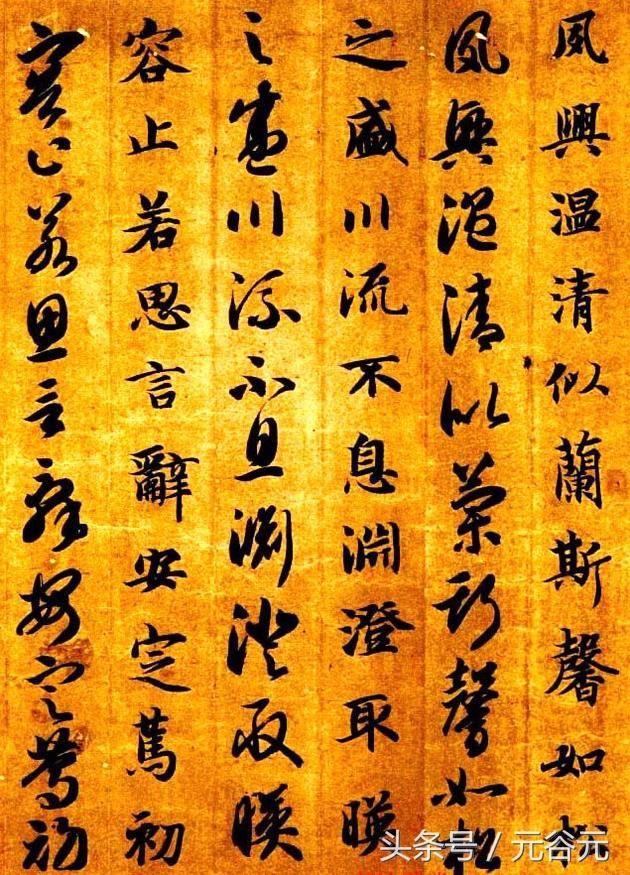 夙興温清似蘭斯馨如松
夙興温清似蘭斯馨如松
之盛川流不息淵澄取暎
之盛川流不息淵澄取暎
容止若思言辭安定篤初
容止若思言辭安定篤初
头条号 / 元谷元